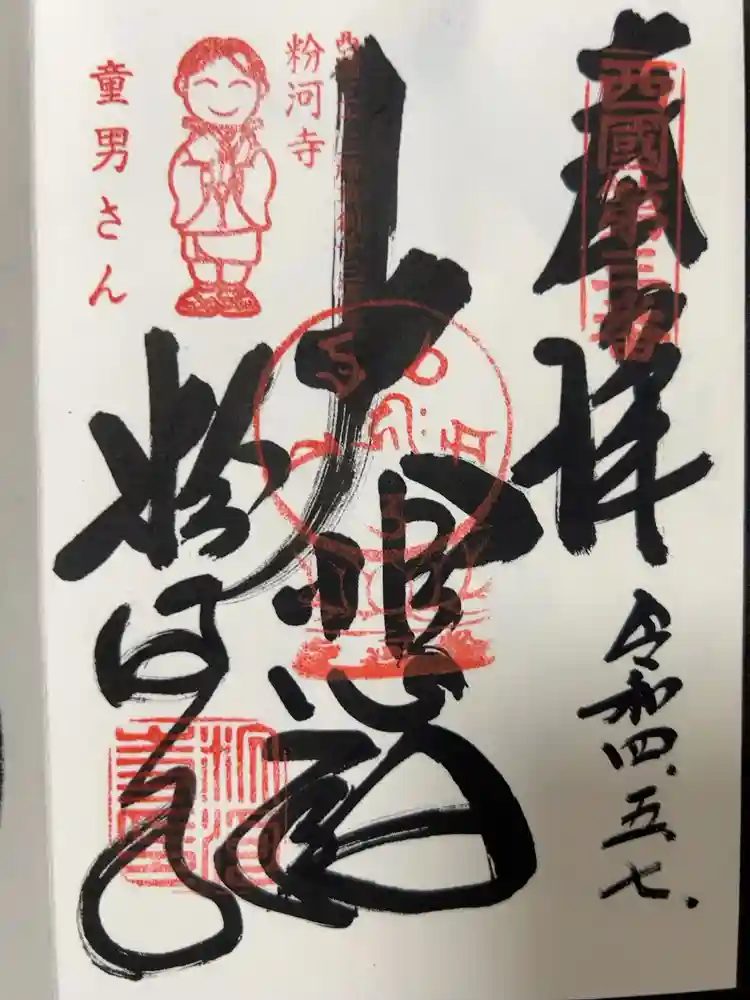 奉拝
西國第三番
令和四.五.七.
大悲殿
粉河寺
粉河寺
童男さん